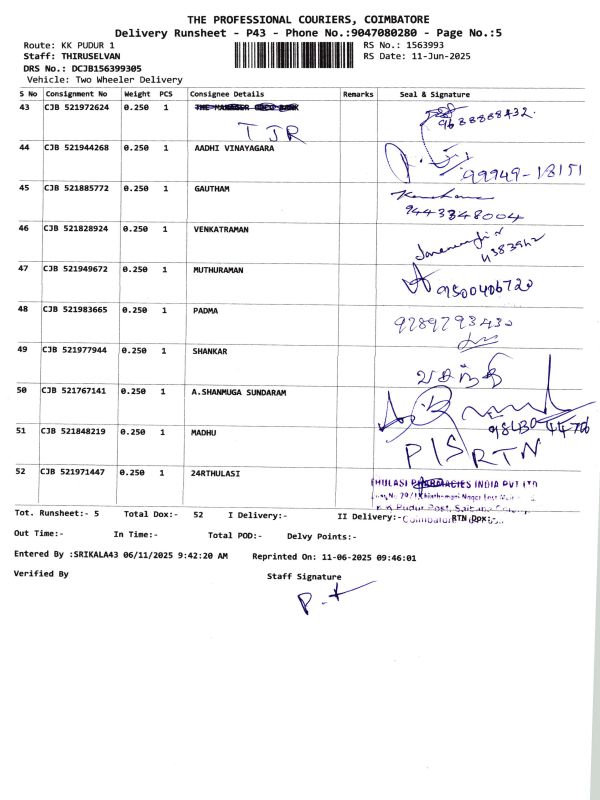 THE PROFESSIONAL COURIERS, COIMBATORE
Delivery Runsheet - P43 - Phone No.:9047080280 - Page No.:5
Route: KK PUDUR 1 RS No.: 1563993
Staff: THIRUSELVAN RS Date: 11-Jun-2025
DRS No.: DCJB156399305
Vehicle: Two Wheeler Delivery
S No Consignment No Weight PCS Consignee Details Remarks Seal & Signature
43 CJB 521972624 0.250 1 THE MANAGER UCO BANK 9688888432
TJR
44 CJB 521944268 0.250 1 AADHI VINAYAGARA 99949-18151
45 CJB 521885772 0.250 1 GAUTHAM
9443348004
46 CJB 521828924 0.250 1 VENKATRAMAN
47 CJB 521949672 0.250 1 MUTHURAMAN 9500406720
48 CJB 521983665 0.250 1 PADMA 9789793430
49 CJB 521977944 0.250 1 SHANKAR
50 CJB 521767141 0.250 1 A.SHANMUGA SUNDARAM
51 CJB 521848219 0.250 1 MADHU
P/S RTN
52 CJB 521971447 0.250 1 24RTHULASI THULASI PHARMACIES INDIA PVT LTD
K K Pudur Post, Saibaba Colony
Coimbatore
Tot. Runsheet:- 5 Total Dox:- 52 I Delivery:- II Delivery:- RTN Dox:-
Out Time:- In Time:- Total POD:- Delvy Points:-
Entered By :SRIKALA43 06/11/2025 9:42:20 AM Reprinted On: 11-06-2025 09:46:01
Verified By Staff Signature